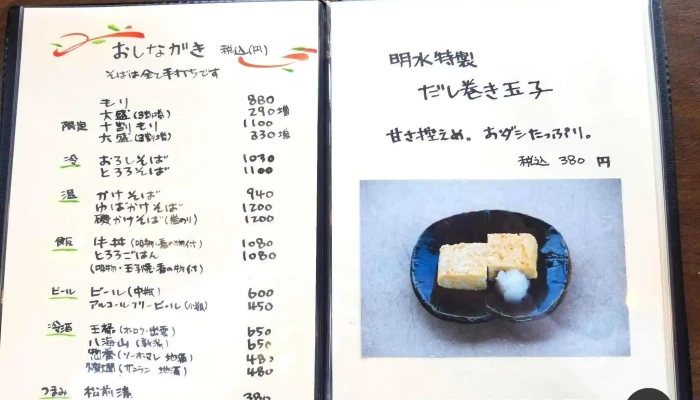 おしながき 税込(円)
そばは全て手打ちです
もり 880
大盛(3割増) 290増
限定 十割もり 1100
大盛(3割増) 330増
冷 おろしそば 1030
とろろそば 1100
温 かけそば 940
ゆばかけそば 1200
磯かけそば(岩のり) 1200
飯 牛丼(吸物・香の物付) 1080
とろろごはん 1080
(吸物・玉子焼・香の物付)
ビール ビール(中瓶) 600
アルコールフリービール(小瓶) 450
冷酒 650
八海山(新潟) 650
地酒) 480
地酒) 480
つまみ 松前漬 380
明水特製
だし巻き玉子
甘さ控えめ。おダシたっぷり。
税込 380 円